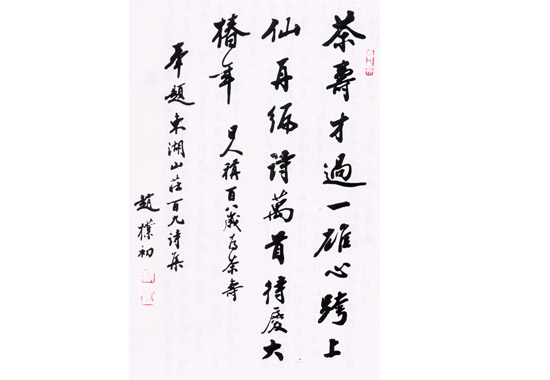 茶壽才過一雄心跨上
仙再編詩萬首待慶大
椿年 日人稱百八歲為茶壽
奉題東湖山莊百九詩集
趙樸初